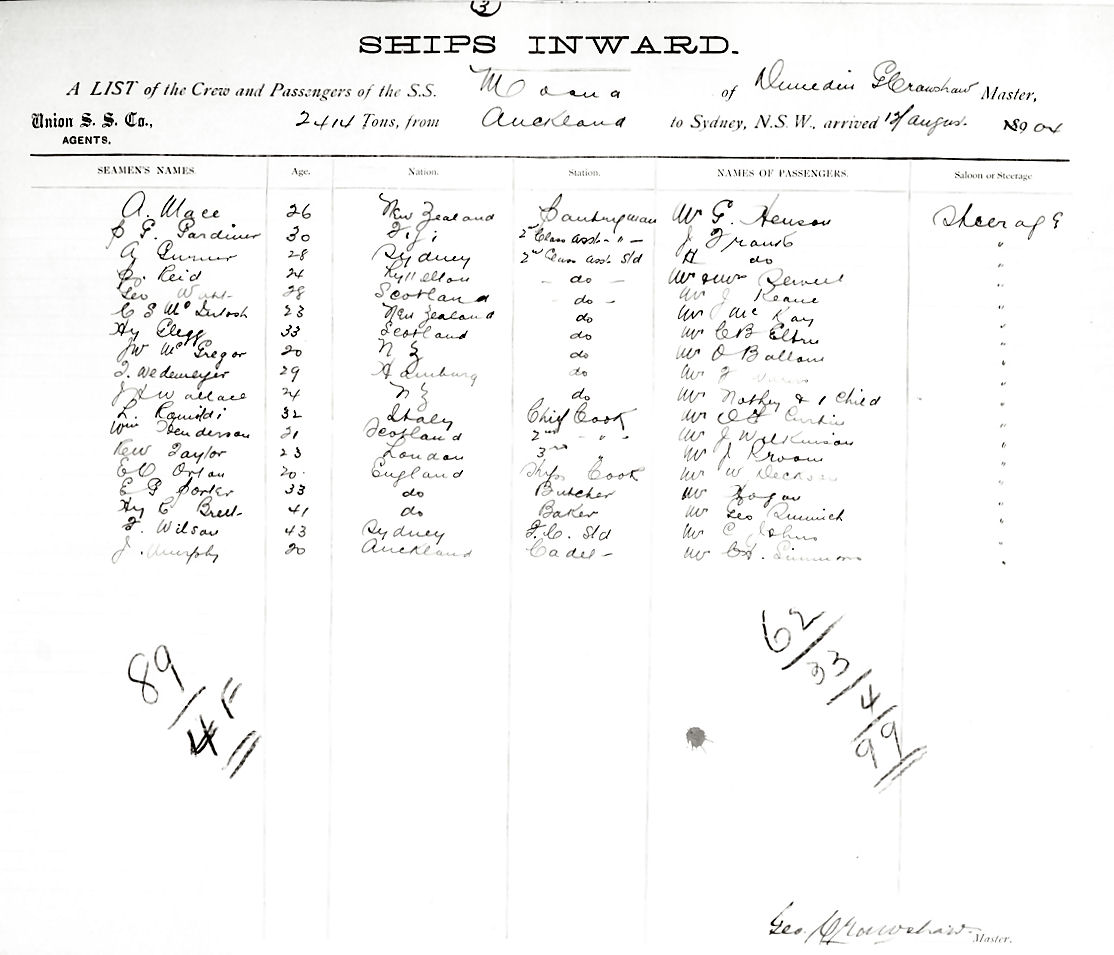 3
SHIPS INWARD.
A LIST of the Crew and Passengers of the S.S. Moana of Dunedin G Crawshaw Master,
Union S. S. Co., 2414 Tons, from Auckland to Sydney, N.S.W., arrived 12/ August 1904
AGENTS.
SEAMEN'S NAMES. Age. Nation. Station. NAMES OF PASSENGERS. Saloon or Steerage
A. Mace 26 New Zealand Pantryman Mr G. Henson Steerage
G. Gardiner 30 Fiji 2nd Class asst - " - J Frank "
A 28 Sydney 2nd Class asst Std H do "
Reid 24 Lyttelton - do - Mr & Mrs "
Geo 28 Scotland - do - Mr J Keane "
C S McIntosh 23 New Zealand do Mr J McKay "
Hy Clegg 33 Scotland do Mr C B "
JW McGregor 20 N Z do Mr O Ballam "
J. Wedemeyer 29 Hamburg do Mr "
J Wallace 24 N Z do Mr Nothey & 1 Child "
L. 32 Italy Chief Cook Mr Curtin "
Wm Henderson 21 Scotland 2nd " " Mr J Wilkinson "
Rew Taylor 23 London 3rd " Mr J Kroom "
E C Orton 20 England Ships Cook Mr W "
E G Porter 33 do Butcher Mr Hogan "
Hy C Brett 41 do Baker Mr Geo "
F. Wilson 43 Sydney F.C. Std Mr C Johns "
J. Murphy 20 Auckland Cadet Mr Simmons "
62/33/4/99
89/
Geo. Crawshaw Master.